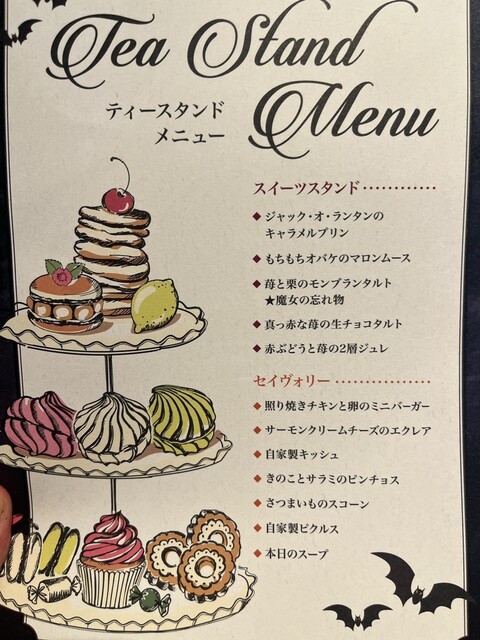 Tea Stand
Menu
ティースタンド
メニュー
スイーツスタンド
◆ ジャック・オ・ランタンの
キャラメルプリン
◆ もちもちオバケのマロンムース
◆ 苺と栗のモンブランタルト
★魔女の忘れ物
◆ 真っ赤な苺の生チョコタルト
◆ 赤ぶどうと苺の2層ジュレ
セイヴォリー
◆ 照り焼きチキンと卵のミニバーガー
◆ サーモンクリームチーズのエクレア
◆ 自家製キッシュ
◆ きのことサラミのピンチョス
◆ さつまいものスコーン
◆ 自家製ピクルス
◆ 本日のスープ